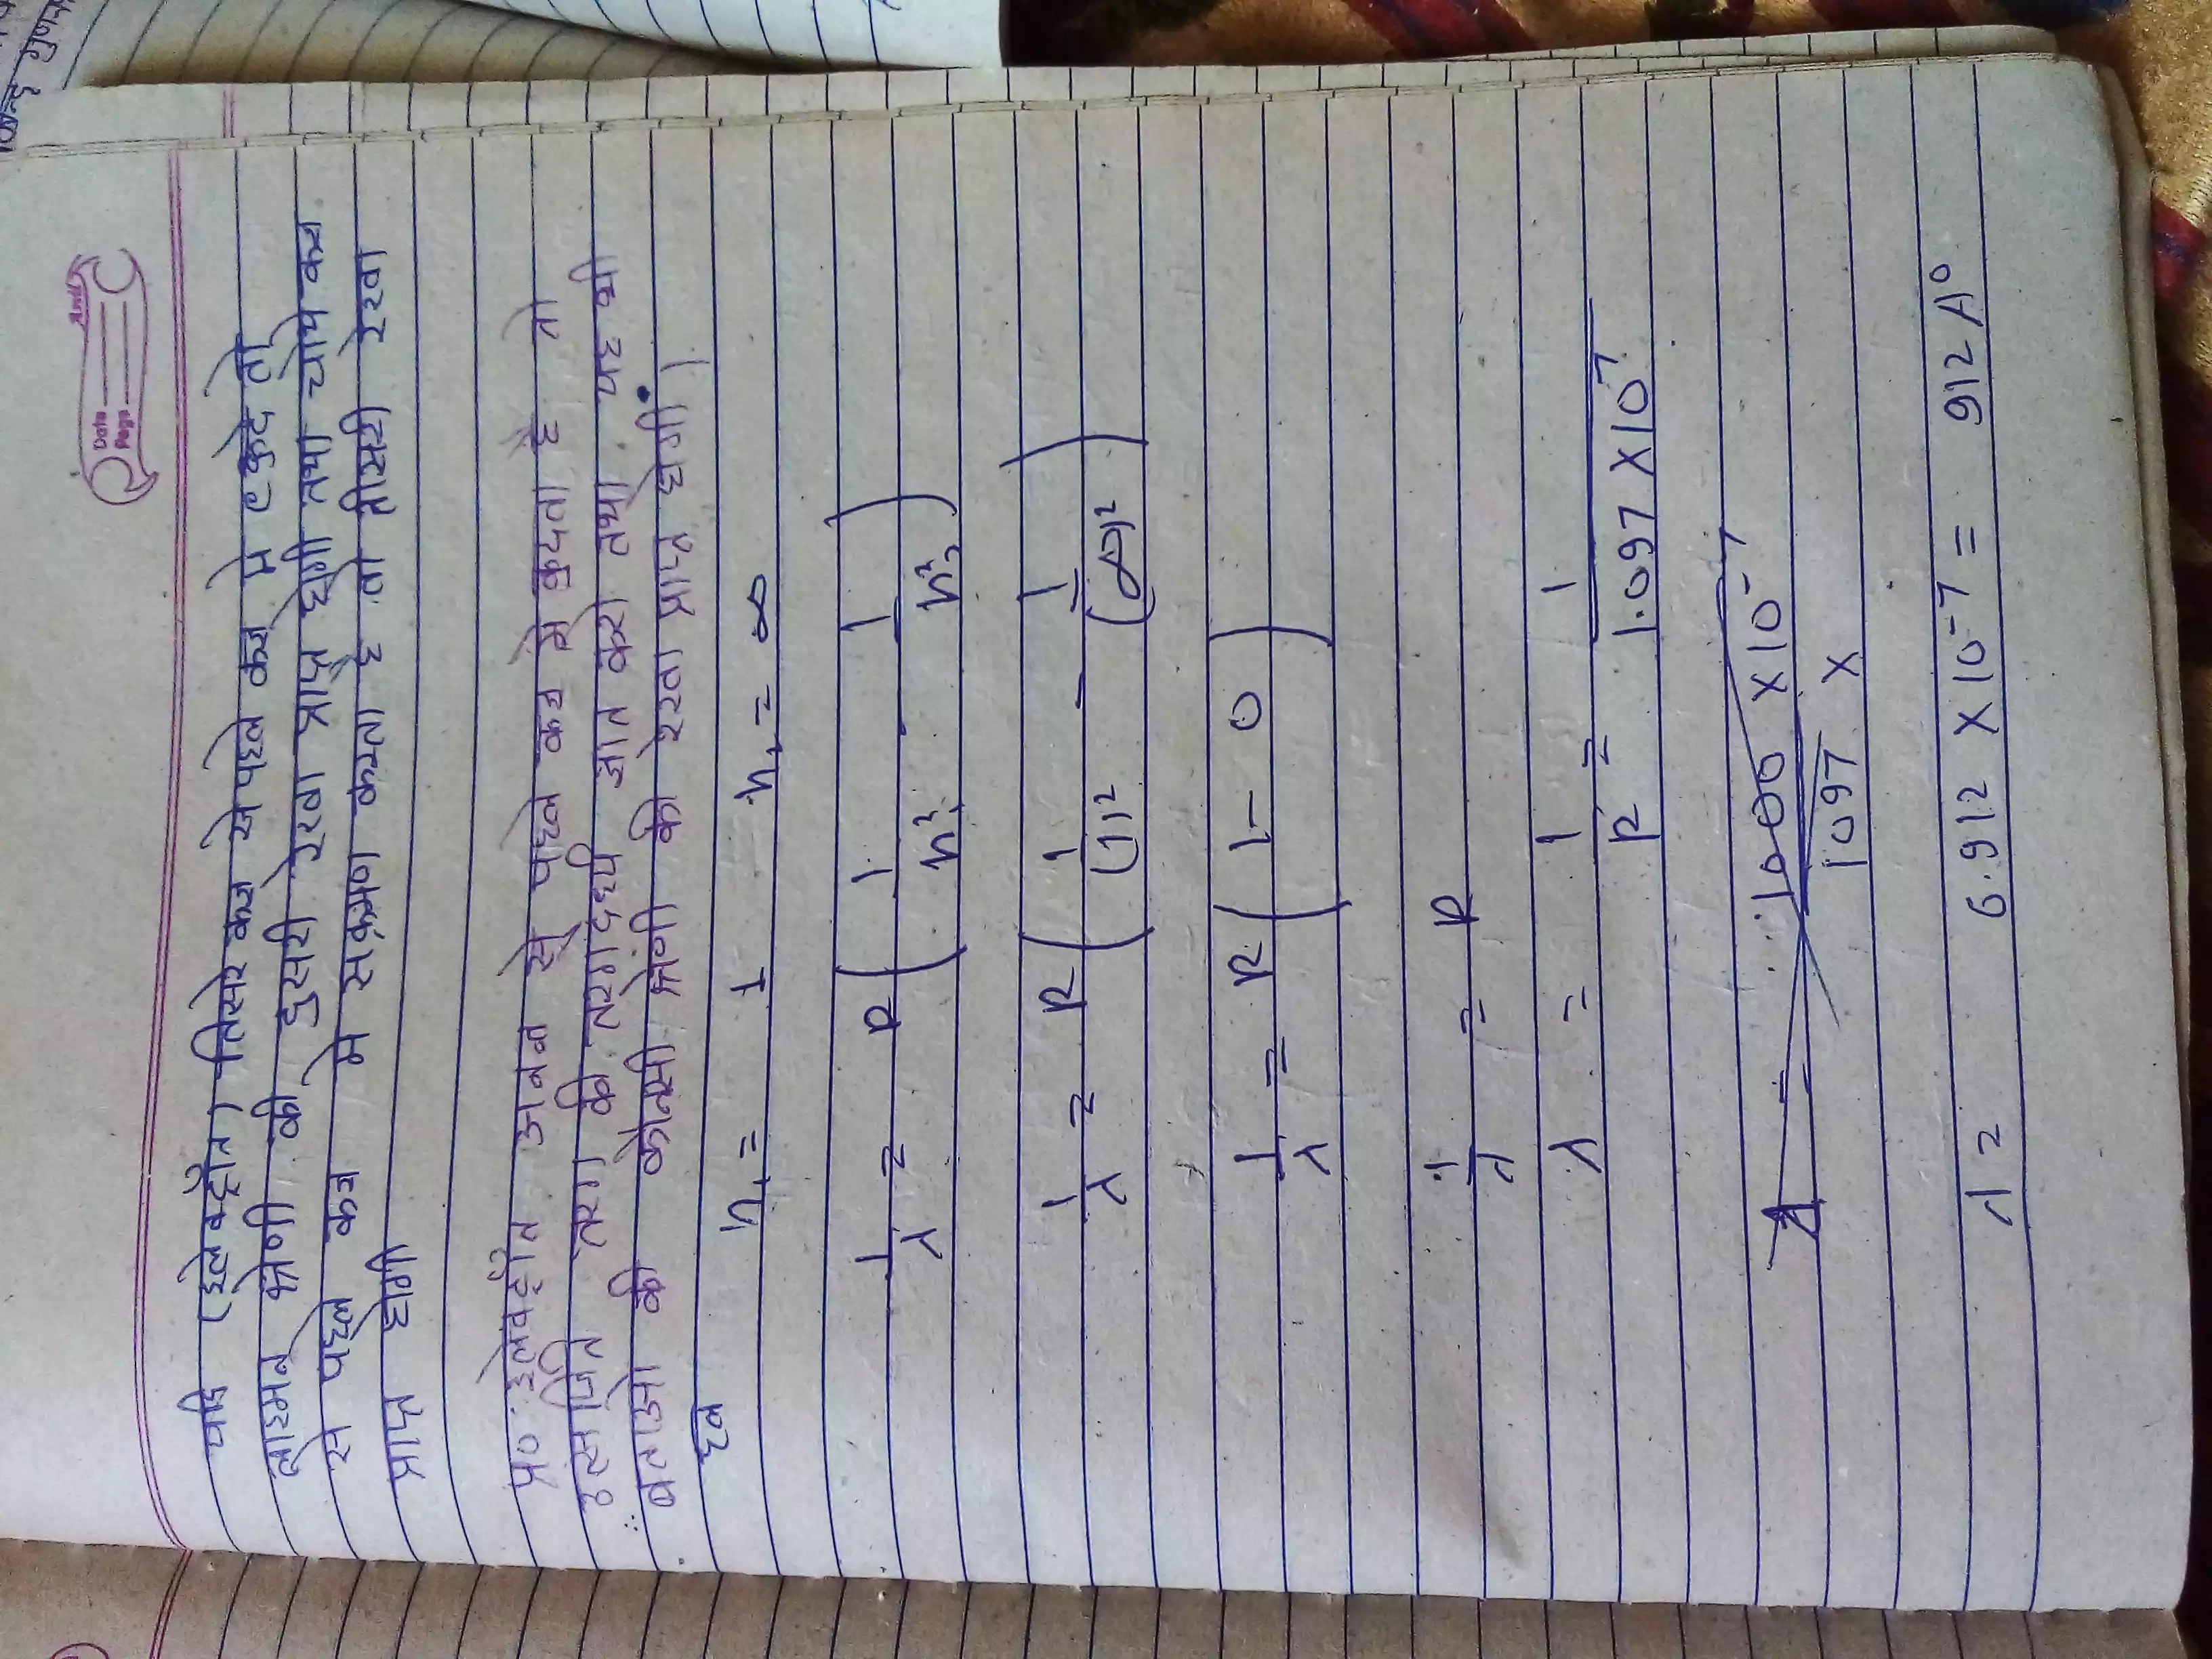 Anil
Date
Page
यदि (इलेक्ट्रोन) तिसरे कक्ष से पहले कक्ष मे e कुदे तो
लाइमन श्रेणी की दुसरी रेखा प्राप्त होगी तथा चौथे कक्ष
से पहले कक्ष मे संक्रमण करता है तो तीसरी रेखा
प्राप्त होगी
प्र० इलेक्ट्रोन अनन्त से पहले कक्ष मे कुदता है तो
उत्सर्जित तरंग की तरंगदैर्ध्य ज्ञात करो तथा यह भी
बताओ की कोनसी श्रेणी की रेखा प्राप्त होगी।
हल n₁ = 1 n₂ = ∞
1/λ = R ( 1/n₁² - 1/n₂² )
1/λ = R ( 1/(1)² - 1/(∞)² )
1/λ = R ( 1 - 0 )
1/λ = R
λ = 1/R = 1/1.097 X 10⁷
λ = 6.912 X 10⁻⁷ = 912 A⁰